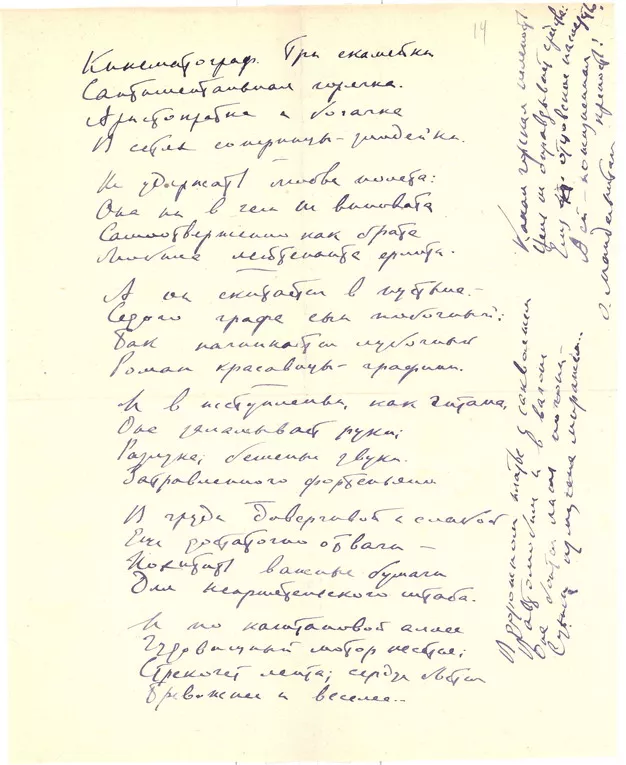 14
Кинематограф. Три скамейки
Сантиментальная горячка.
Аристократка и богачка
В сетях соперницы-злодейки.
Не удержать любви полета:
Она ни в чем не виновата
Самоотверженно как брата
Любила лейтенанта флота.
А он скитается в пустыне –
Седого графа сын побочный:
Так начинается лубочный
Роман красавицы-графини.
И в исступленьи, как гитана,
Она заламывает руки;
Разлука; бешеные звуки
Затравленного фортепьяно
В груди доверчивой и слабой
Еще достаточно отваги –
Похитить важные бумаги
Для неприятельского штаба.
И по каштановой аллее
Чудовищный мотор несется;
Стрекочет лента; сердце бьется
Тревожнее и веселее..
В дорожном платье, с саквояжем
В автомобиле и в вагоне
Она боится лишь погони –
Сухим измучена миражем...
Какая горькая нелепость
Цель не оправдывает средства:
Ему отцовское наследство,
А ей – пожизненная крепость!
О. Мандельштам